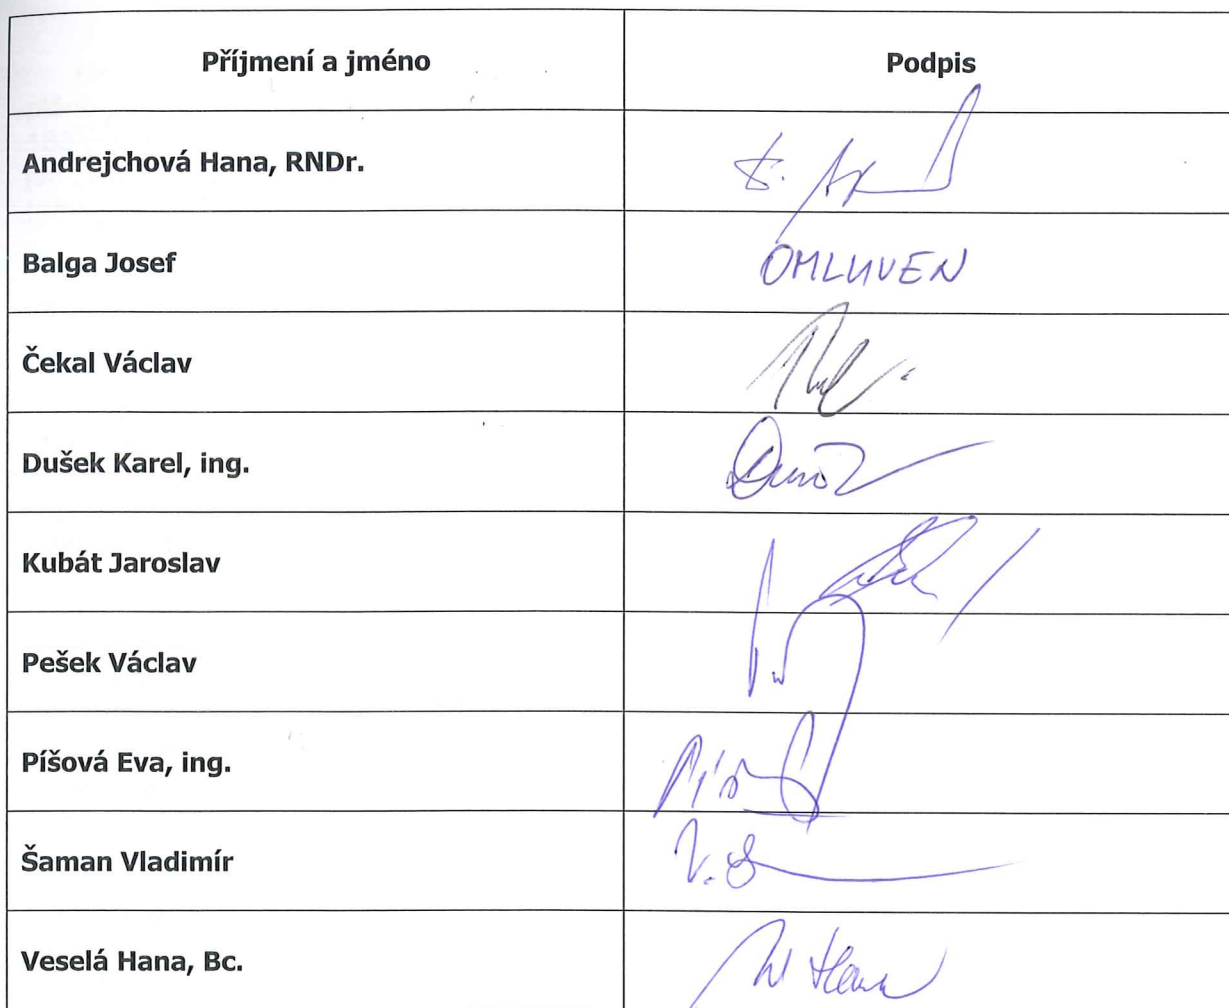 Příjmení a jméno Podpis
Andrejchová Hana, RNDr.
Balga Josef OMLUVEN
Čekal Václav
Dušek Karel, ing.
Kubát Jaroslav
Pešek Václav
Píšová Eva, ing.
Šaman Vladimír
Veselá Hana, Bc. Hana